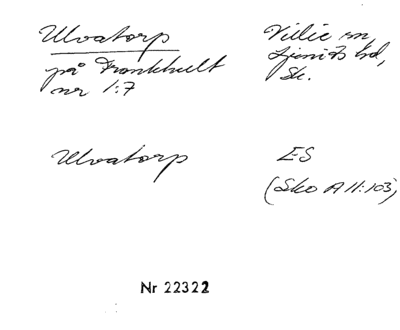 Ulvatorp
på Frankhult
nr 1:7
Villie sn,
Ljunits hd,
Sk.
Ulvatorp
ES
(Sko A II:103)
Nr 22322